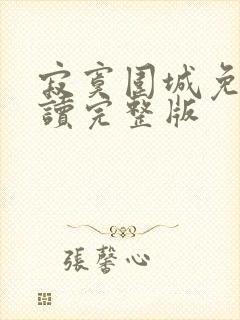 寂寞围城免
讀完整版
張馨心